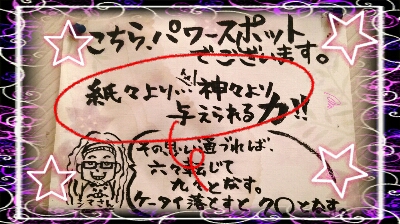 こちら、パワースポット
でございます。
紙々より…神々より
与えられる力!!
その思い通づれば、
六々転じて
九々となす。
ケータイ落とすと ク〇となす。